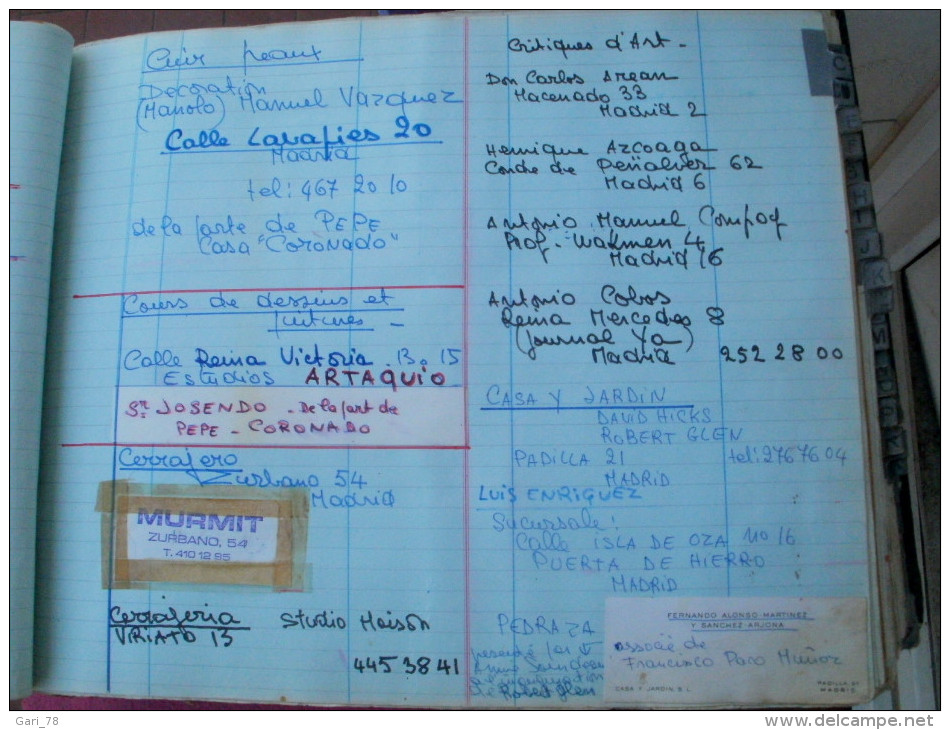 Cuir peaux
Decoration
(Manolo) Manuel Vazquez
Calle Lavapies 20
Madrid
tel: 467 20 10
de la parte de PEPE
Casa "CORONADO"
Cours de dessins et
peintures -
Calle Reina Victoria 13 . 15
Estudios ARTAQUIO
Sr. JOSENDO - De la part de
PEPE - CORONADO
Cerrajero
Zurbano 54
Madrid
MURMIT
ZURBANO, 54
T. 410 12 95
Cerrajeria Studio Maison
VRIATO 13
445 38 41
Critiques d'Art -
Don Carlos Arean
Macenado 33
Madrid 2
Henrique Azcoaga
Conde de Peñalver 62
Madrid 6
Antonio Manuel Campoy
Prof. Waksmen 4
Madrid 16
Antonio Cobos
Reina Mercedes 8
(Journal Ya)
Madrid 252 28 00
CASA Y JARDIN
DAVID HICKS
ROBERT GLEN
PADILLA 21 tel: 276 76 04
MADRID
LUIS ENRIQUEZ
Sucursale:
Calle ISLA DE OZA No 16
PUERTA DE HIERRO
MADRID
PEDRAZA
presenté par
inauguration
De Robert Glen
FERNANDO ALONSO-MARTINEZ
Y SANCHEZ-ARJONA
associé de
Francisco Paro Muñoz
CASA Y JARDIN S.L.
PADILLA 21
MADRID
C
E
H
I
J
K
M
O
P
Gari_78
http://www.delcampe.net